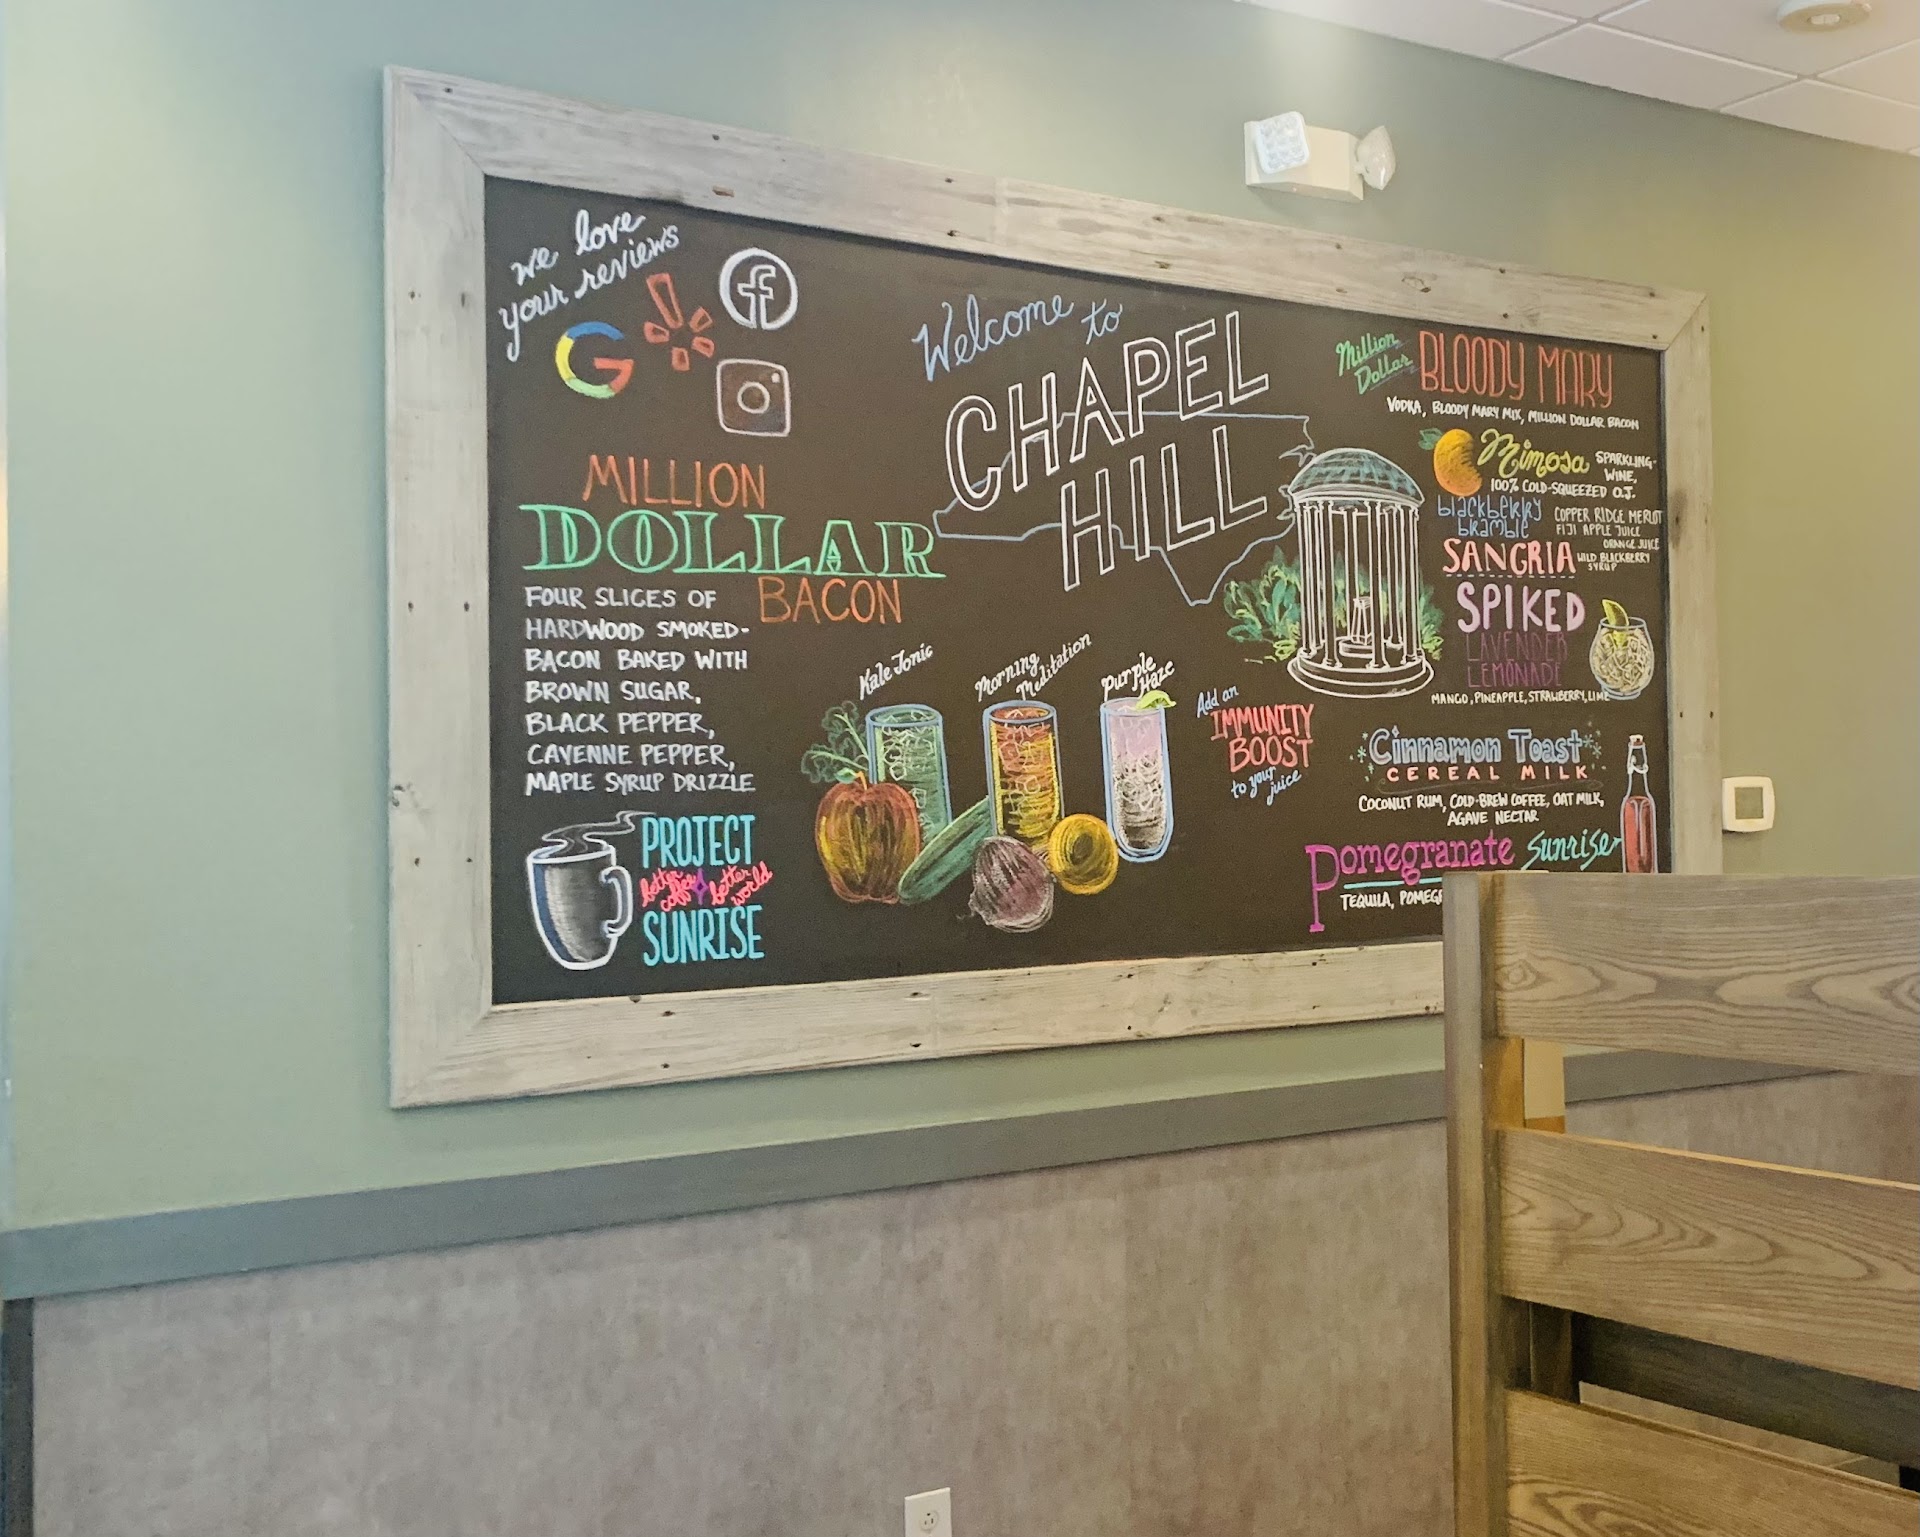 we love
your reviews
G
f
MILLION
DOLLAR
BACON
FOUR SLICES OF
HARDWOOD SMOKED-
BACON BAKED WITH
BROWN SUGAR,
BLACK PEPPER,
CAYENNE PEPPER,
MAPLE SYRUP DRIZZLE
PROJECT
better coffee better world
SUNRISE
Welcome to
CHAPEL
HILL
Kale Tonic
Morning
Meditation
Purple
Haze
Add an
IMMUNITY
BOOST
to your
juice
Million
Dollar
BLOODY MARY
VODKA, BLOODY MARY MIX, MILLION DOLLAR BACON
Mimosa
SPARKLING
WINE,
100% COLD-SQUEEZED O.J.
blackberry
bramble
SANGRIA
COPPER RIDGE MERLOT
FIJI APPLE JUICE
ORANGE JUICE
WILD BLACKBERRY
SYRUP
SPIKED
LAVENDER
LEMONADE
MANGO, PINEAPPLE, STRAWBERRY, LIME
Cinnamon Toast
CEREAL MILK
COCONUT RUM, COLD-BREW COFFEE, OAT MILK,
AGAVE NECTAR
Pomegranate Sunrise
TEQUILA, POMEG